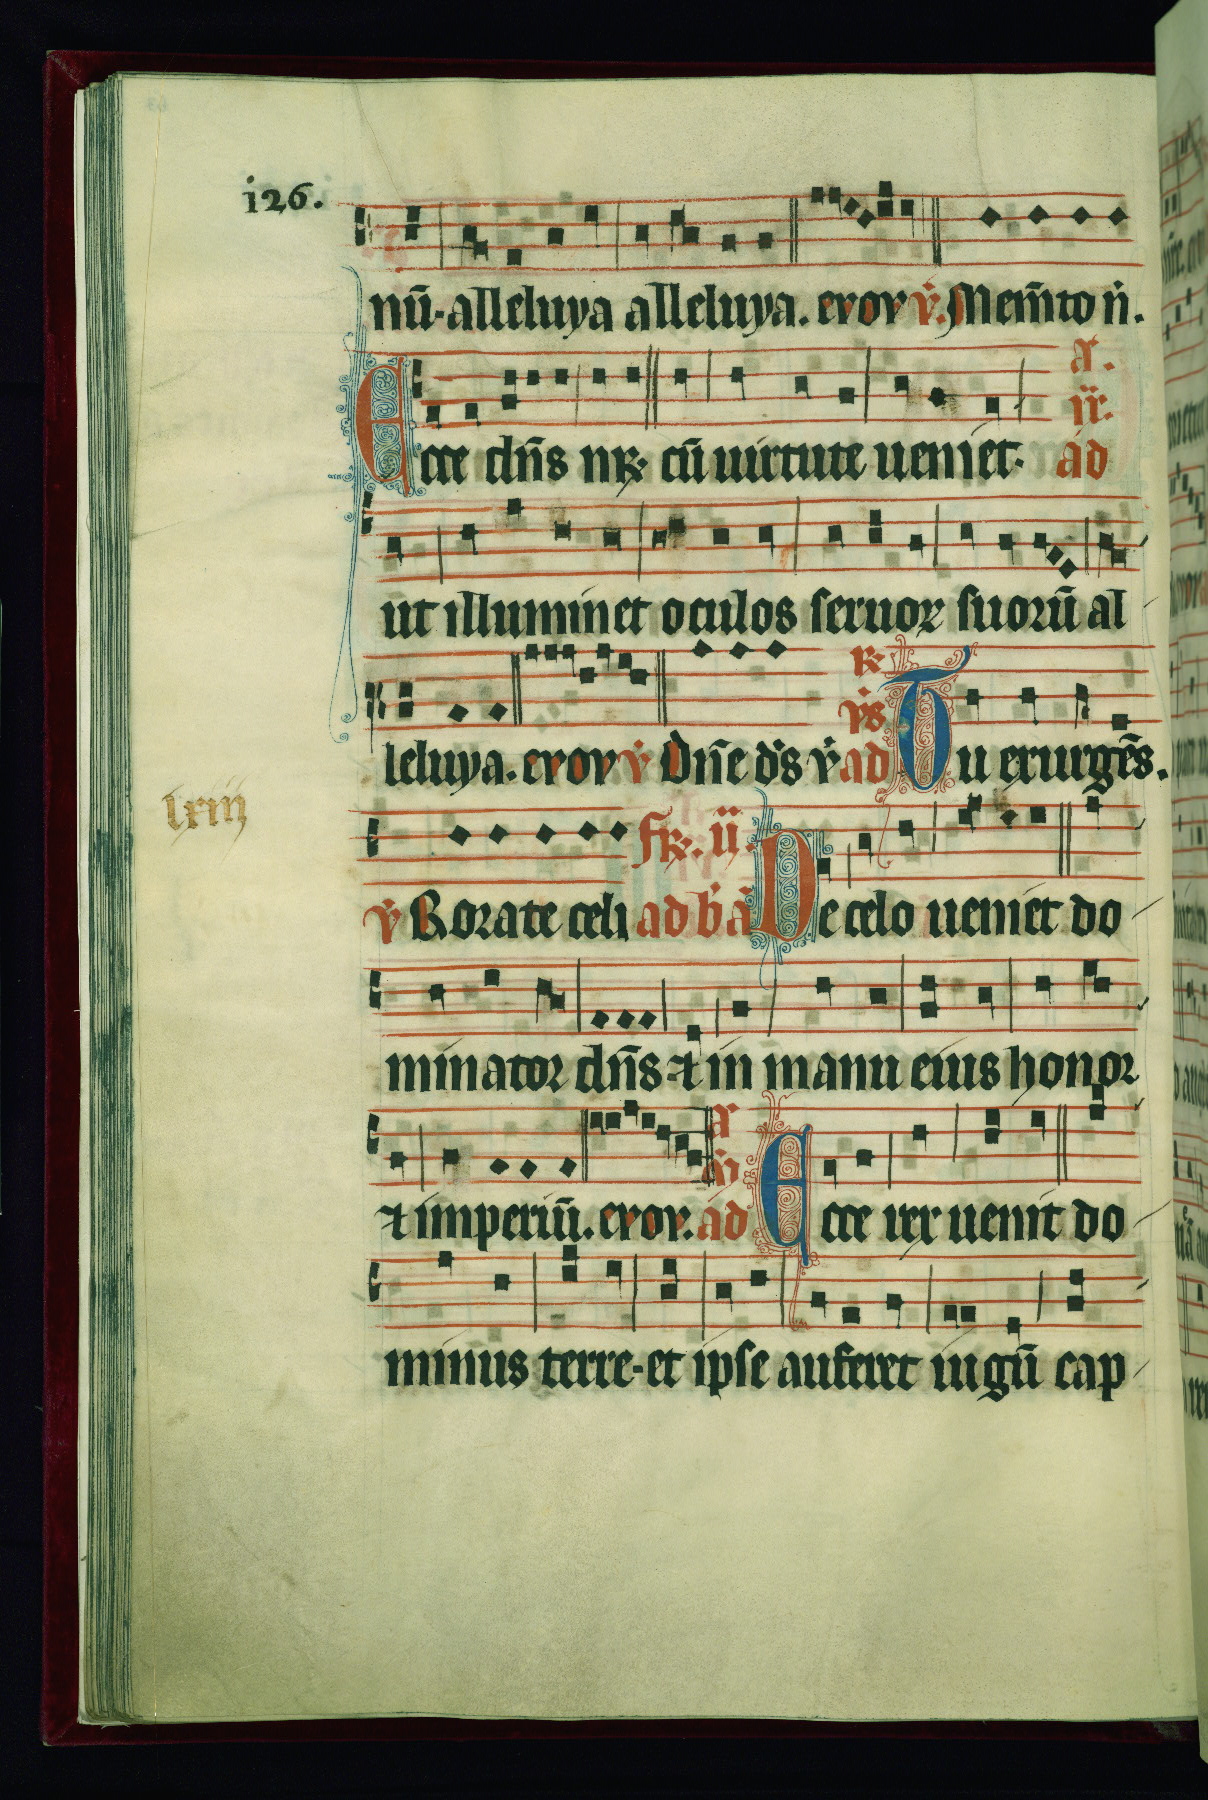 i26.
nū. alleluya alleluya. evov v̇. Mem̄to n̄.
a.
ix.
Ecce dn̄s nr̄. cū uirtute ueniet. ad
ut illuminet oculos seruoꝝ suorū al
R.
vs
leluya. evov v̇ Dn̄e ds̄ v̇ ad Tu exurgēs.
lxiii
fr. ii.
v̇ Rorate celi ad b̄ a De celo ueniet do
minator dn̄s ⁊ in manu eius honor
a
⁊ imperiū. evov. ad Ecce rex uenit do
minus terre. et ipse auferet iugū cap